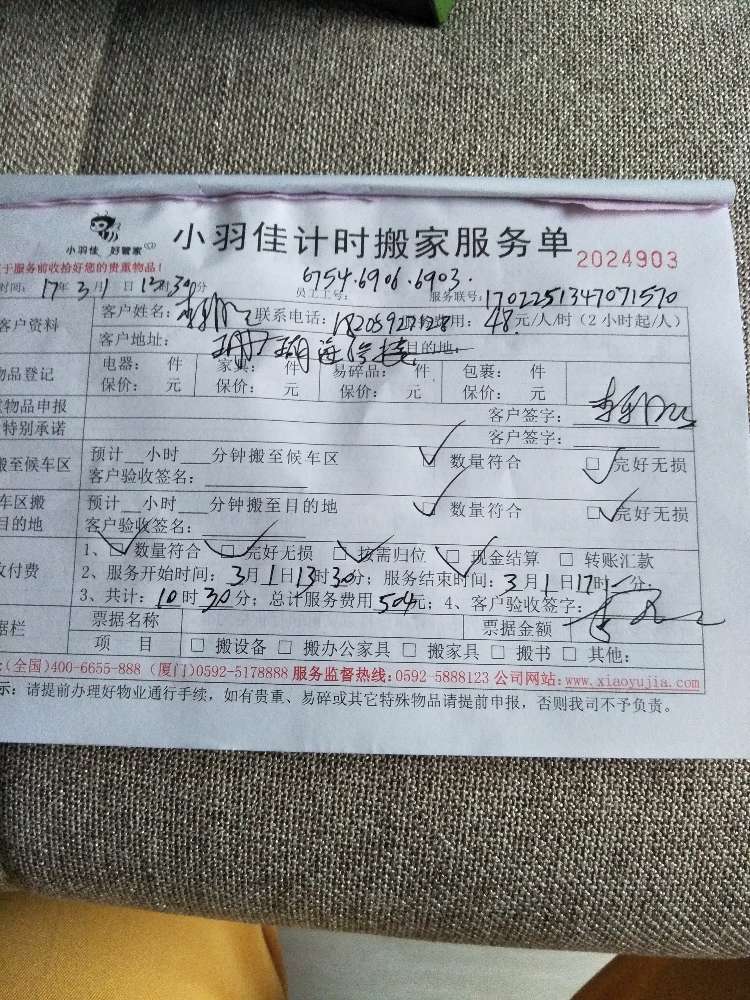 小羽佳 好管家
小羽佳计时搬家服务单
2024903
于服务前收拾好您的贵重物品！
时间: 17年3月1日 13时30分
员工工号: 6754.6906.6903.
服务联号: 1702251347071570
客户资料
客户姓名:
联系电话:
费用: 48元/人/时(2小时起/人)
客户地址:
目的地:
物品登记
电器: 件 家具: 件 易碎品: 件 包裹: 件
保价: 元 保价: 元 保价: 元 保价: 元
物品申报
客户签字:
特别承诺
客户签字:
搬至候车区
预计__小时____分钟搬至候车区
☑ 数量符合 ☑ 完好无损
客户验收签名:
车区搬
目的地
预计__小时____分钟搬至目的地
☑ 数量符合 ☑ 完好无损
客户验收签名:
付费
1、☑ 数量符合 ☑ 完好无损 ☑ 按需归位 ☑ 现金结算 □ 转账汇款
2、服务开始时间: 3月1日13时30分; 服务结束时间: 3月1日17时 分;
3、共计: 10时30分; 总计服务费用504元; 4、客户验收签字:
据栏
票据名称
票据金额
项 目
□ 搬设备 □ 搬办公家具 □ 搬家具 □ 搬书 □ 其他:
(全国)400-6655-888 (厦门)0592-5178888 服务监督热线:0592-5888123 公司网站:www.xiaoyujia.com
示: 请提前办理好物业通行手续，如有贵重、易碎或其它特殊物品请提前申报，否则我司不予负责。